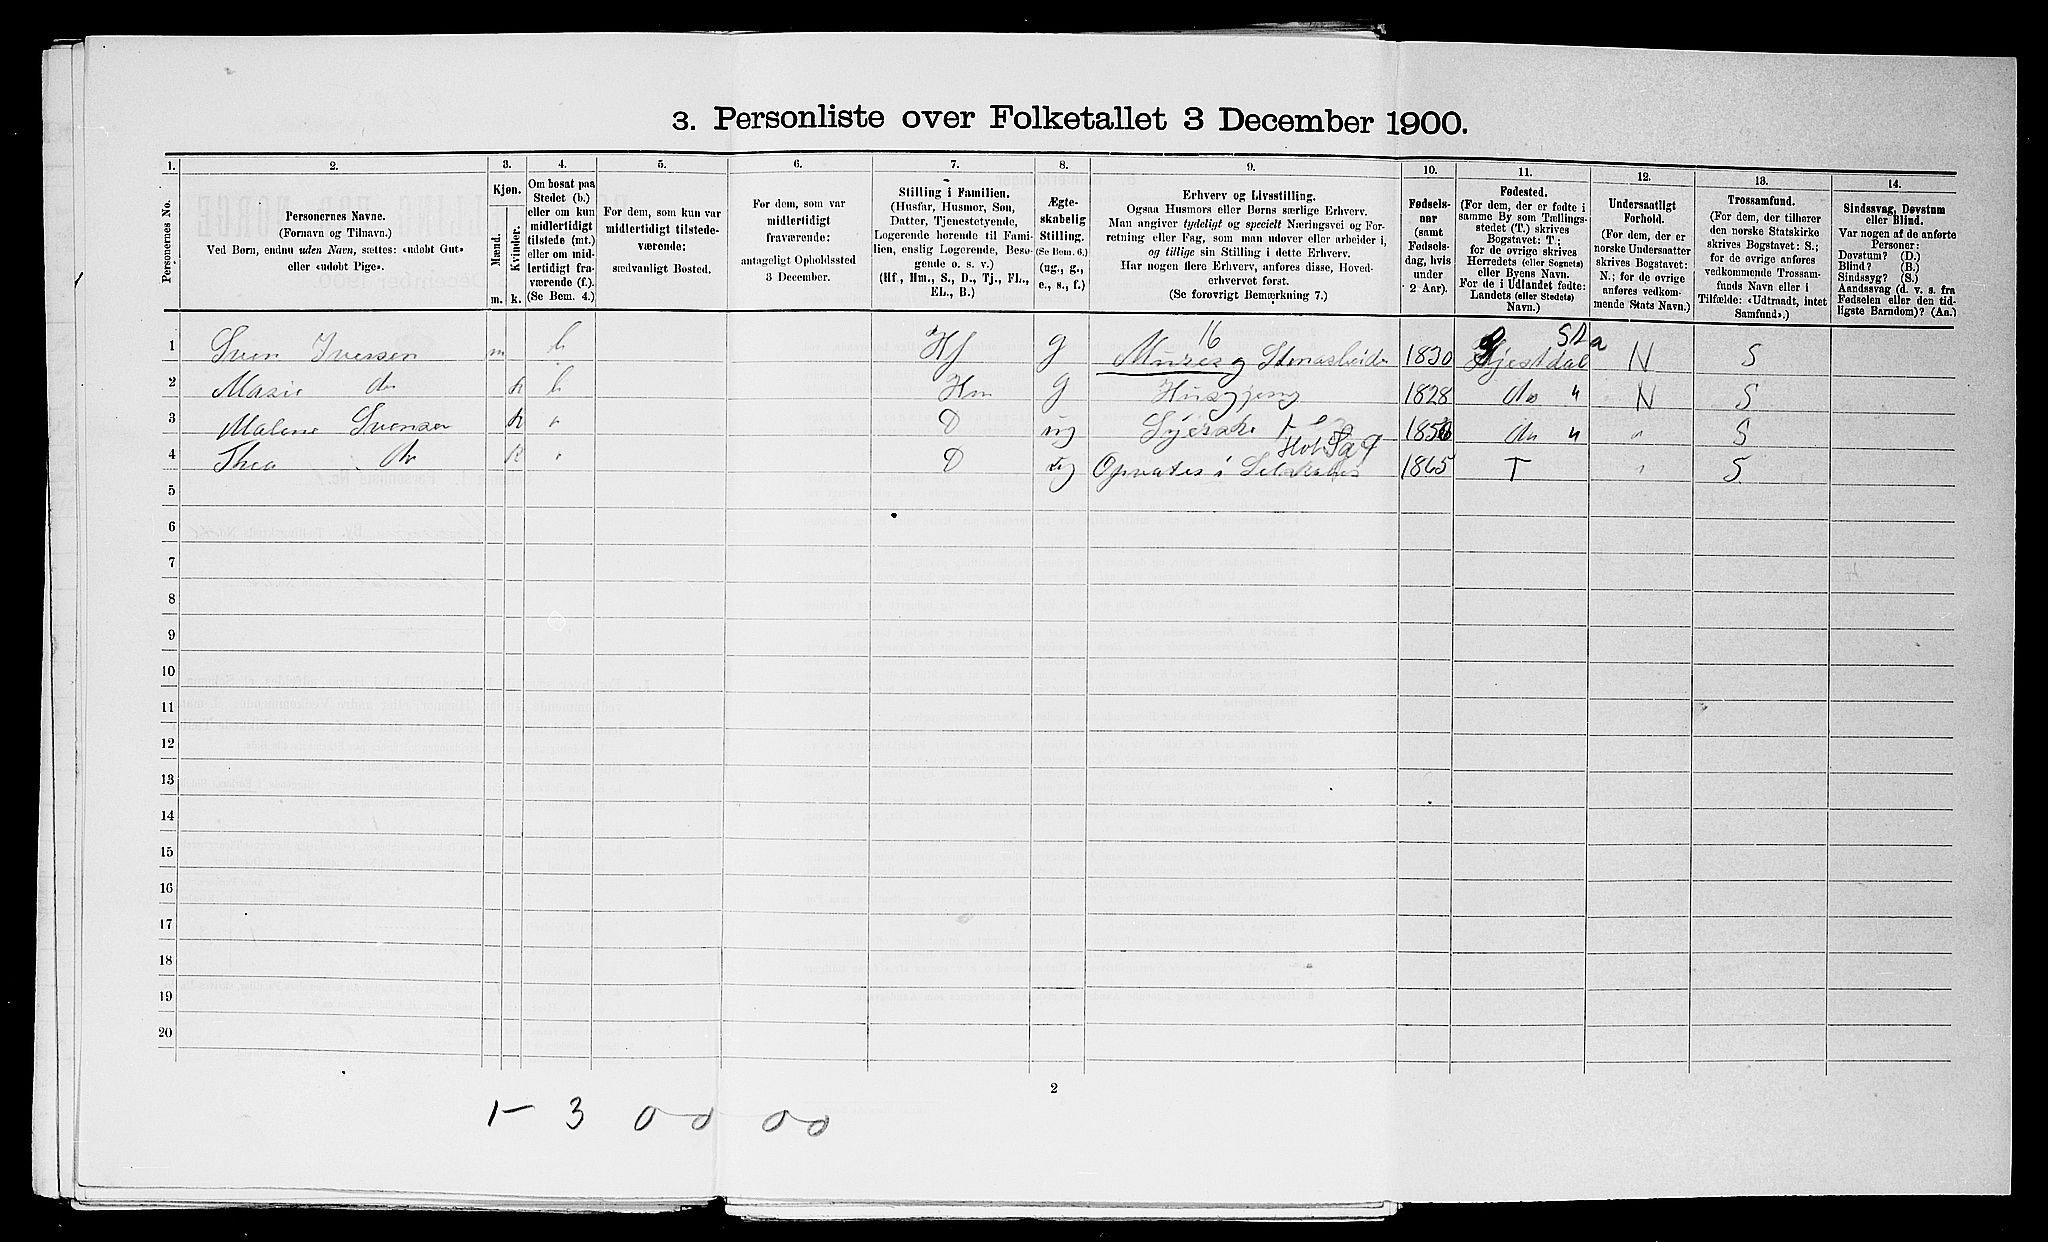 3. Personliste over Folketallet 3 December 1900.
1. 2. 3. 4. 5. 6. 7. 8. 9. 10. 11. 12. 13. 14.
Personernes No.
Personernes Navne.
(Fornavn og Tilnavn.)
Ved Børn, endnu uden Navn, sættes: «udøbt Gut»
eller «udøbt Pige».
Kjøn.
Mænd. Kvinder.
m. k.
Om bosat paa
Stedet (b.)
eller om kun
midlertidigt
tilstede (mt.)
eller om mid-
lertidigt fra-
værende (f.).
(Se Bem. 4.)
For dem, som kun var
midlertidigt tilstede-
værende:
sædvanligt Bosted.
For dem, som var
midlertidigt
fraværende:
antageligt Opholdssted
3 December.
Stilling i Familien.
(Husfar, Husmor, Søn,
Datter, Tjenestetyende,
Logerende hørende til Fami-
lien, enslig Logerende, Besø-
gende o. s. v.)
(Hf., Hm., S., D., Tj., FL.,
EL., B.)
Ægte-
skabelig
Stilling.
(Se Bem. 6.)
(ug., g.,
e., s., f.)
Erhverv og Livsstilling.
Ogsaa Husmors eller Børns særlige Erhverv.
Man angiver tydeligt og specielt Næringsvei og For-
retning eller Fag, som man udøver eller arbeider i,
og tillige sin Stilling i dette Erhverv.
Har nogen flere Erhverv, anføres disse, Hoved-
erhvervet først.
(Se forøvrigt Bemærkning 7.)
Fødsels-
aar
(samt
Fødsels-
dag, hvis
under
2 Aar).
Fødested.
(For dem, der er fødte i
samme By som Tællings-
stedet (T.) skrives
Bogstavet: T.;
for de øvrige skrives
Herredets (eller Sognets)
eller Byens Navn.
For de i Udlandet fødte:
Landets (eller Stedets)
Navn.)
Undersaatligt
Forhold.
(For dem, der er
norske Undersaatter
skrives Bogstavet:
N.; for de øvrige
anføres vedkom-
mende Stats Navn.)
Trossamfund.
(For dem, der tilhører
den norske Statskirke
skrives Bogstavet: S.;
for de øvrige anføres
vedkommende Trossam-
funds Navn eller i
Tilfælde: «Udtraadt, intet
Samfund».)
Sindssvag, Døvstum
eller Blind.
Var nogen af de anførte
Personer:
Døvstum? (D.)
Blind? (B.)
Sindssyg? (S.)
Aandssvag (d. v. s. fra
Fødselen eller den tid-
ligste Barndom)? (Aa.)
16 St a
1 Sven Iversen m b Hf g Murer og Stenarbeider 1830 Gjestdal N S
2 Marie do k b Hm g Husgjerng 1828 do " N S
3 Malene Svensen k " D ug Syerske 185 do " " S
4 Thea do k " D ug Opvarter i 1865 T " S
5
6
7
8
9
10
11
12
13
14
15
16
17
18
19
20
2
1 - 3 0 0 0 0